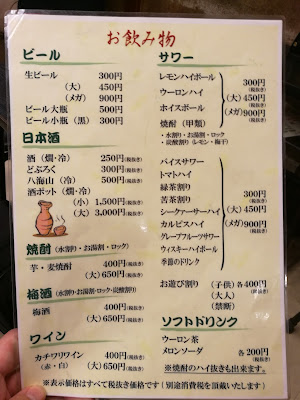 お飲み物
ビール
生ビール 300円
(大) 450円
(メガ) 900円
ビール大瓶 500円
ビール小瓶(黒) 300円
日本酒
酒(燗・冷) 250円(税抜き)
どぶろく 300円(税抜き)
八海山(冷) 500円(税抜き)
酒ポット(燗・冷)
(小) 1,500円(税抜き)
(大) 3,000円(税抜き)
焼酎(水割り・お湯割・ロック)
芋・麦焼酎 400円(税抜き)
(大) 650円(税抜き)
梅酒(水割り・お湯割・ロック・炭酸割り)
梅酒 400円(税抜き)
(大) 650円(税抜き)
ワイン
カチワリワイン 400円(税抜き)
(赤・白) (大) 650円(税抜き)
サワー
レモンハイボール
ウーロンハイ
ホイスボール
焼酎(甲類)
・水割り・お湯割・ロック
・炭酸割り(レモン・梅干)
300円(税抜き)
(大) 450円(税抜き)
(メガ) 900円(税抜き)
バイスサワー
トマトハイ
緑茶割り
苦茶割り
シークァーサーハイ
カルピスハイ
グレープフルーツサワー
ウィスキーハイボール
季節のドリンク
300円(税抜き)
(大) 450円(税抜き)
(メガ) 900円(税抜き)
お遊び割り (子供) 各400円(税抜き)
(大人)
(禁断)
ソフトドリンク
ウーロン茶
メロンソーダ 各200円(税抜き)
※焼酎のハイ抜きも出来ます。
※表示価格はすべて税抜き価格です(別途消費税を頂戴いたします)